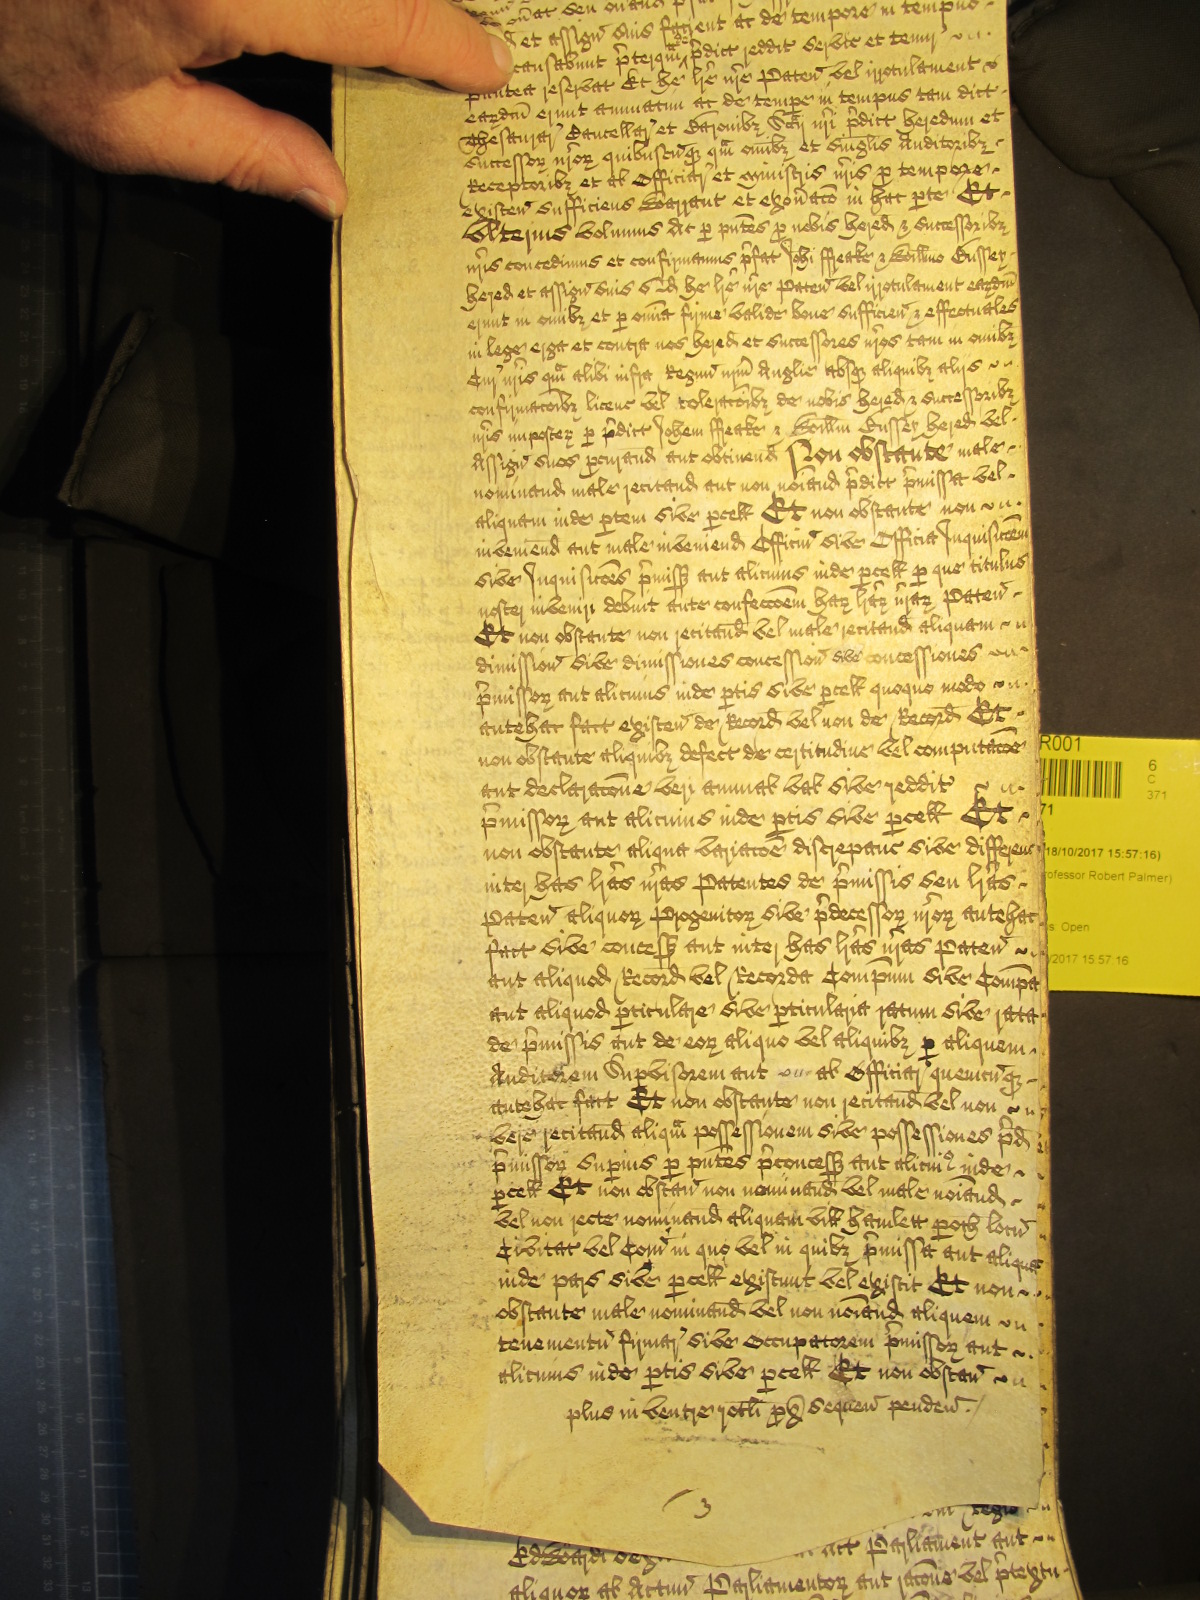 et assign suis facient ac de tempore in tempus
causabunt preterqm de predict reddit servic et tenur
pantea reservat Et he lre nre Paten vel irrotulament
eardm erunt annuatim ac de tempe in tempus tam dict
Thesaurar Cancellar et Baronibz Sccij nri pdict heredum et
successoꝝ nroꝝ quibuscuqꝫ qm omibz et singlis Auditoribz
Receptoribz et al Officiar et Ministris nris ꝑ tempore
existen sufficiens Warrant et exonaco in hac ꝑte Et
Ulterius volumus Ac ꝑ pntes ꝑ nobis hered & successoribz
nris concedimus et confirmamus pfat Johi ffreake & Willmo
hered et assign suis qd he lre nre Paten vel irrotulament eardm
erunt in omibz et ꝑ omia firme valide bone sufficien & effectuales
in lege erga et contra nos hered et successores nros tam in omibz
Cur nris qm alibi infra Regnu nrm Anglie absqꝫ aliquibz alijs
confirmacoibz licenc vel toleracoibz de nobis hered & successoribz
nris imposteꝝ ꝑ pdict Johem ffreake & Willm hered vel
Assign suos ꝑcurand aut obtinend Non obstante male
nominand male recitand aut non noiand pdict pmissa vel
aliquam inde ꝑtem sive ꝑcell Et non obstante non
inveniend aut male inveniend Officiu sive Officia Inquisicoem
sive Inquisicoes pmissꝝ aut alicuius inde ꝑcell ꝑ que titulus
noster inveniri debuit ante confeccoem haꝝ lraꝝ nraꝝ Paten
Et non obstante non recitand vel male recitand aliquam
dimission sive dimissiones concession sive concessiones
pmissoꝝ aut alicuius inde ꝑtis sive ꝑcell quoquo modo
antehac fact existen de Record vel non de Record Et
non obstante aliquibz defect de certitudine vel computacoe
aut declaracoe veri annual val sive reddit
pmissoꝝ aut alicuius inde ꝑtis sive ꝑcell Et
non obstante aliqua variacoe discrepanc sive differenc
inter has lras nras Patentes de pmissis seu lras
Paten aliquoꝝ Progenitoꝝ sive pdecessoꝝ nroꝝ antehac
fact sive concess aut inter has lras nras Paten
aut aliquod Record vel Recorda Compum sive Compa
aut aliquod ꝑticulare sive ꝑticularia ratum sive rata
de pmissis aut de eoꝝ aliquo vel aliquibz ꝑ aliquem
Auditorem Supvisorem aut al Officiar quemcuqꝫ
antehac fact Et non obstante non recitand vel non
vere recitand aliqm possessionem sive possessiones pd
pmissoꝝ supius ꝑ pntes pconcess aut alicui9 inde
ꝑcell Et non obstan non nominand vel male noiand
vel non recte nominand aliquam vill hamlett ꝑoch locu
Civitat vel Com in quo vel in quibz pmissa aut aliqua
inde pars sive ꝑcell existunt vel existit Et non
obstante male nominand vel non noiand aliquem
tenementu firmar sive Occupatorem pmissoꝝ aut
alicuius inde ꝑtis sive ꝑcell Et non obstan
plus in ventre rotli ꝑx sequen penden.
3
Edwardi act Parliament aut
aliquoꝝ al Actuu Parliamentoꝝ aut racoe vel ptextu
R001
6
C
371
71
18/10/2017 15:57:16)
rofessor Robert Palmer)
s Open
/2017 15:57:16